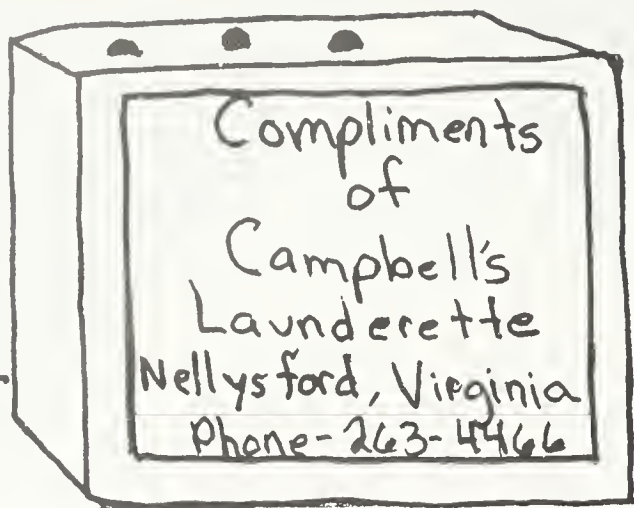 Compliments
of
Campbell's
Launderette
Nellysford, Virginia
Phone-263-4466